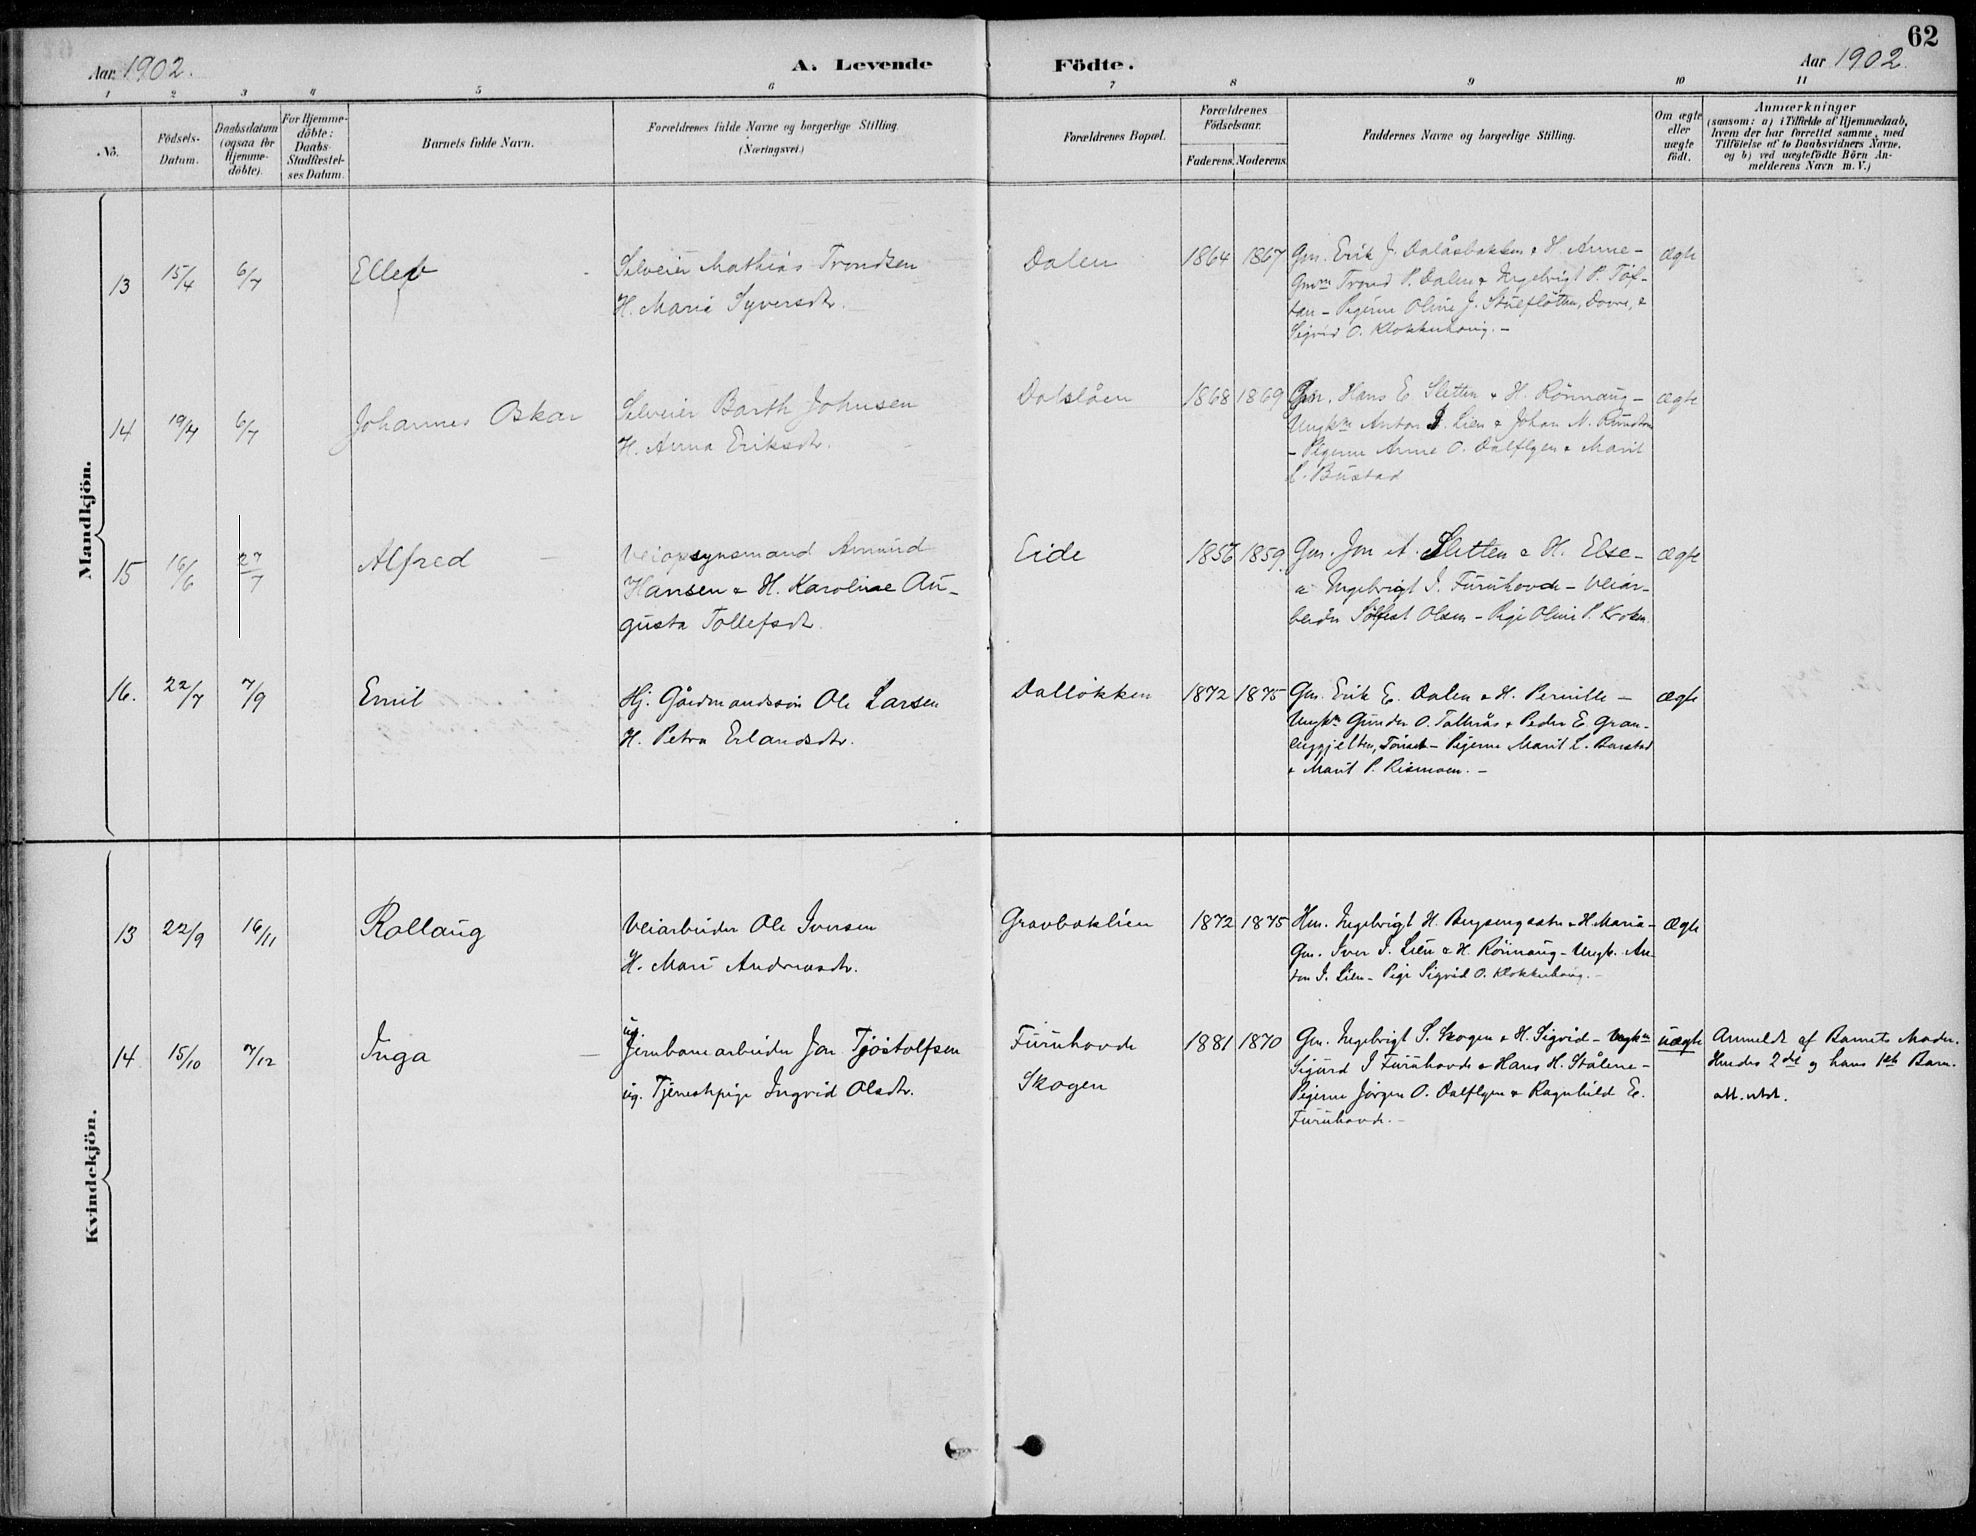 62
Aar 1902.
A. Levende Födte.
Aar 1902.
1 2 3 4 5 6 7 8 9 10 11
No.
Födsels-
Datum.
Daabsdatum
(ogsaa for
Hjemme-
döbte).
For Hjemme-
döbte:
Daabs-
Stadfæstel-
ses Datum.
Barnets fulde Navn.
Forældrenes fulde Navne og borgerlige Stilling
(Næringsvei.)
Forældrenes Bopæl.
Forældrenes
Födselsaar.
Faderens. Moderens.
Faddernes Navne og borgerlige Stilling.
Om ægte
eller
uægte
födt.
Anmærkninger
(saasom: a) i Tilfælde af Hjemmedaab,
hvem der har forrettet samme, med
Tilföielse af to Daabsvidners Navne,
og b) ved uægtefödte Börn An-
melderens Navn m. V.)
Mandkjön.
13 15/4 6/7 Ellef
Selveier Mathias Trondsen
H. Mari Syversdtr.
Dalen 1864 1867
Gm. Erik J. Dalåsbakken & H. Anne-
Gmm Trond P. Dalen & Ingebrigt P. Tof-
tan - Pigerne Oline J. Stuefløtten, Dovre, &
Sigrid O. Klokkerhaug. -
ægte
14 19/4 6/7 Johannes Oskar
Selveier Barth Johnsen
H. Anna Eriksdtr.
Dalslåen 1868 1869
Gm. Hans E. Sletten & H. Rönnaug -
Ungkm Anton I. Lien & Johan N.
- Pigerne Anne O. Dalflyen & Marit
L. Bustad
ægte
15 16/6 27/7 Alfred
Veiopsynsmand Amund
Hansen & H. Karoline Au-
gusta Tollefsdtr.
Eide 1856 1859.
Gm. Jon A. Sletten & H. Else -
& Ingebrigt I. Furuhovde - Veiar-
beider Sølfest Olsen - Pige Oline P. Kroken
ægte
16. 22/7 7/9 Emil
Hj. Gårdmandssøn Ole Larsen
H. Petra Erlandsdtr.
Dalløkken 1872 1875
Gm. Erik E. Dalen & H. Pernille -
Ungkm Gunder O. Tallerås & Peder E. Gran-
Tönset - Pigerne Marit L. Bustad
& Marit P. Rismoen. -
ægte
Kvindekjön.
13 22/9 16/11 Rollaug
Veiarbeider Ole Iversen
H. Mari Andreasdtr.
Gravbaklien 1872 1875
Hm. Ingebrigt H. Bergsengsætr & H. Maria -
Gm. Iver I. Lien & H. Rönnaug - Ungk. An-
ton I. Lien - Pige Sigrid O. Klokkerhaug. -
Ægte
14 15/10 7/12 Inga
ug.
Jernbanearbeider Jon Tjøstolfsen
ug. Tjenestpige Ingrid Olsdtr.
Furuhovde
Skogen
1881 1870
Gm. Ingebrigt S. Skogen & H. Sigrid - Ungkm
Sigurd I Furuhovde & Hans H. Stålene -
Pigerne Jørgen O. Dalflyen & Ragnhild E.
Furuhovde. -
uægte
Anmeldt af Barnets Moder.
Hendes 2det og hans 1ste Barn.
att. utst.